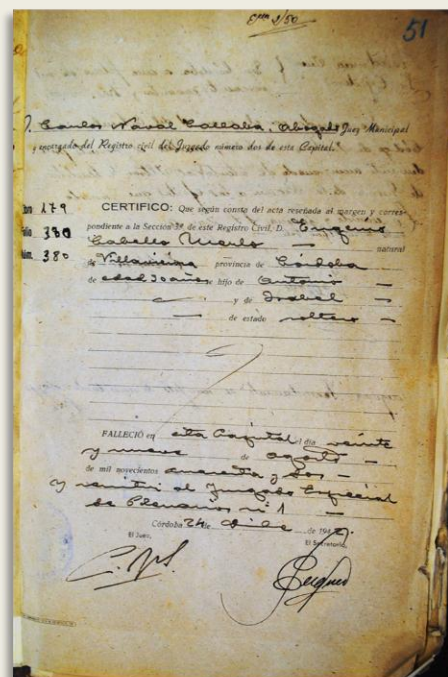 51
D. Carlos Naval Callaba, Abogado Juez Municipal
y encargado del Registro civil del Juzgado número dos de esta Capital.
179 CERTIFICO: Que según consta del acta reseñada al margen y corres-
380 pondiente a la Sección 3ª de este Registro Civil, D. Eugenio
380 Cabello Merlo natural
de provincia de Córdoba
de edad 30 años hijo de Antonio
y de Isabel
de estado soltero
FALLECIÓ en esta Capital el día veinte
y nueve de agosto
de mil novecientos cuarenta y dos
y remitir al Juzgado Especial
de Plenarios nº 1
Córdoba 24 de Dibe de 1942.
El Juez, El Secretario,